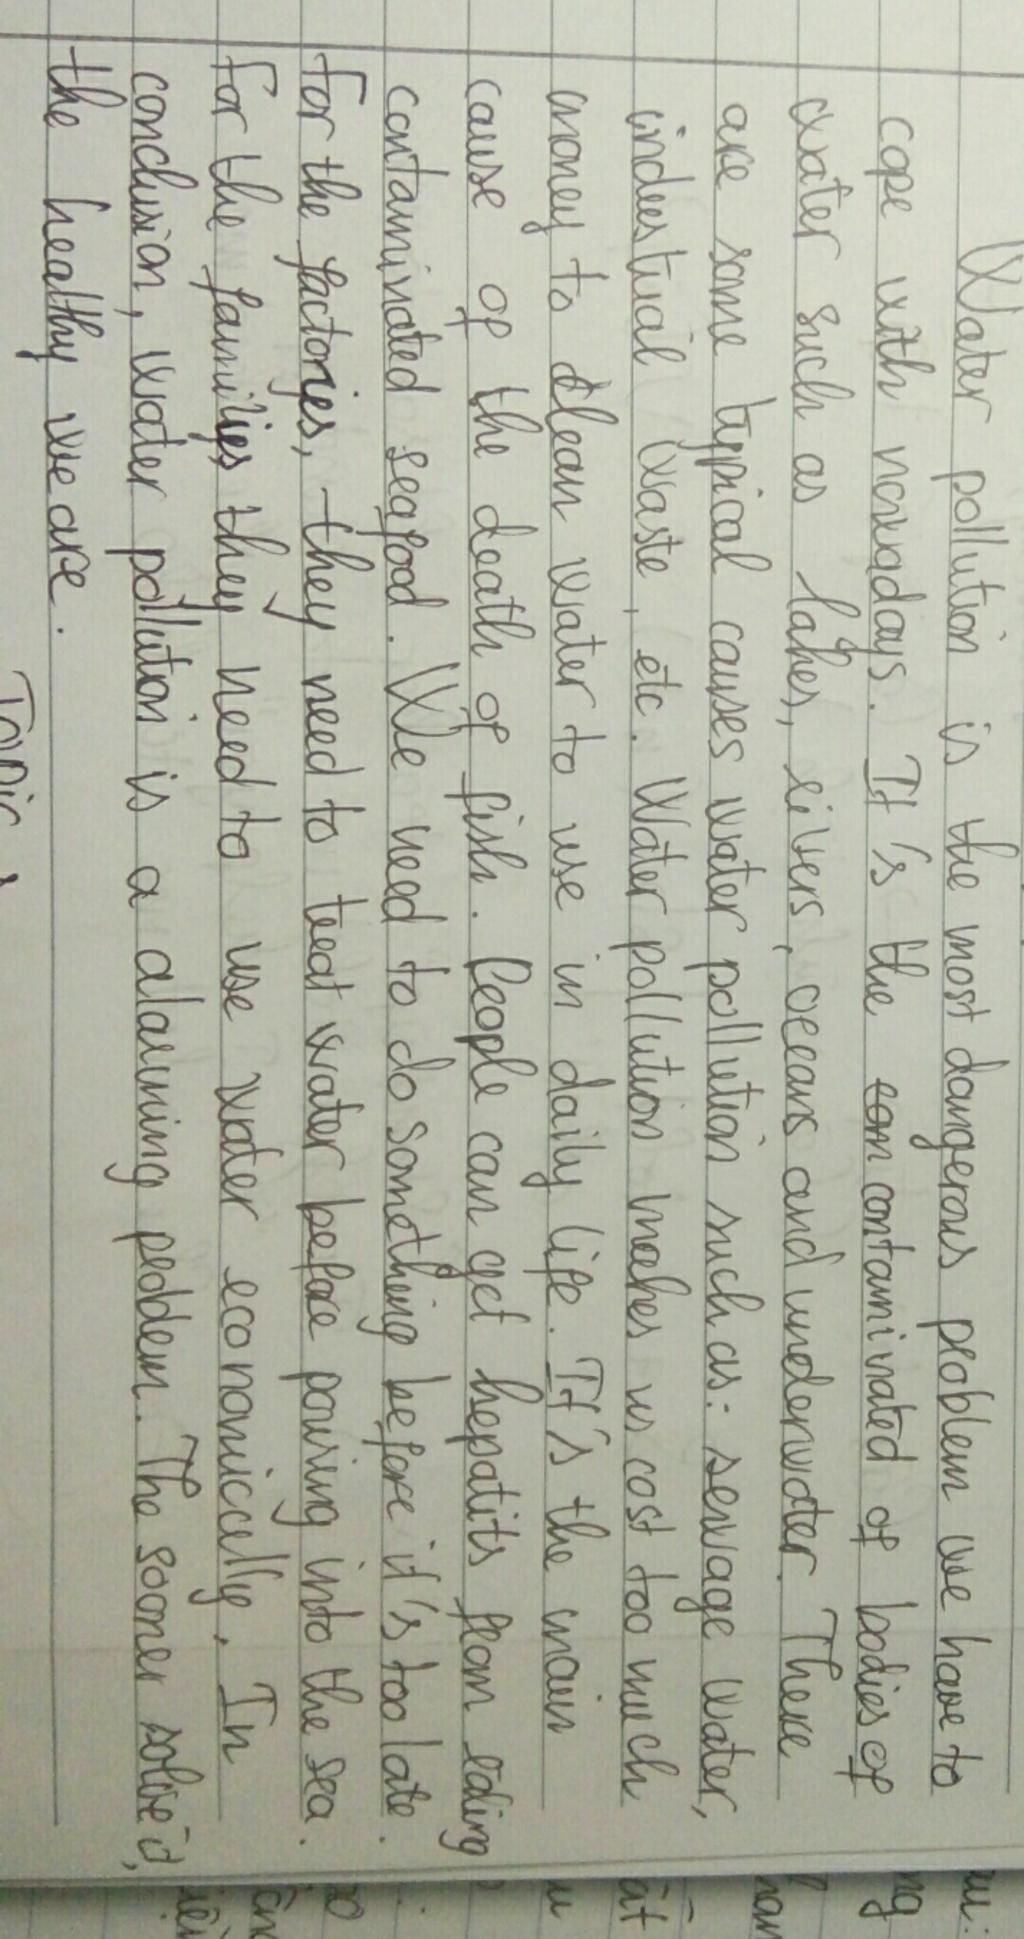 Water pollution is the most dangerous problem we have to
cope with nowadays. It's the com contaminated of bodies of
water such as lakes, rivers, oceans and underwater. There
are some typical causes water pollution such as: sewage water,
industrial waste, etc. Water pollution makes us cost too much
money to clean water to use in daily life. It's the main
cause of the death of fish. People can get hepatits from eating
contaminated seafood. We need to do something before it's too late.
For the factories, they need to treat water before pouring into the sea.
For the families, they need to use water economically. In
conclusion, water pollution is a alarming problem. The sooner solve it,
the healthy we are.
Topic